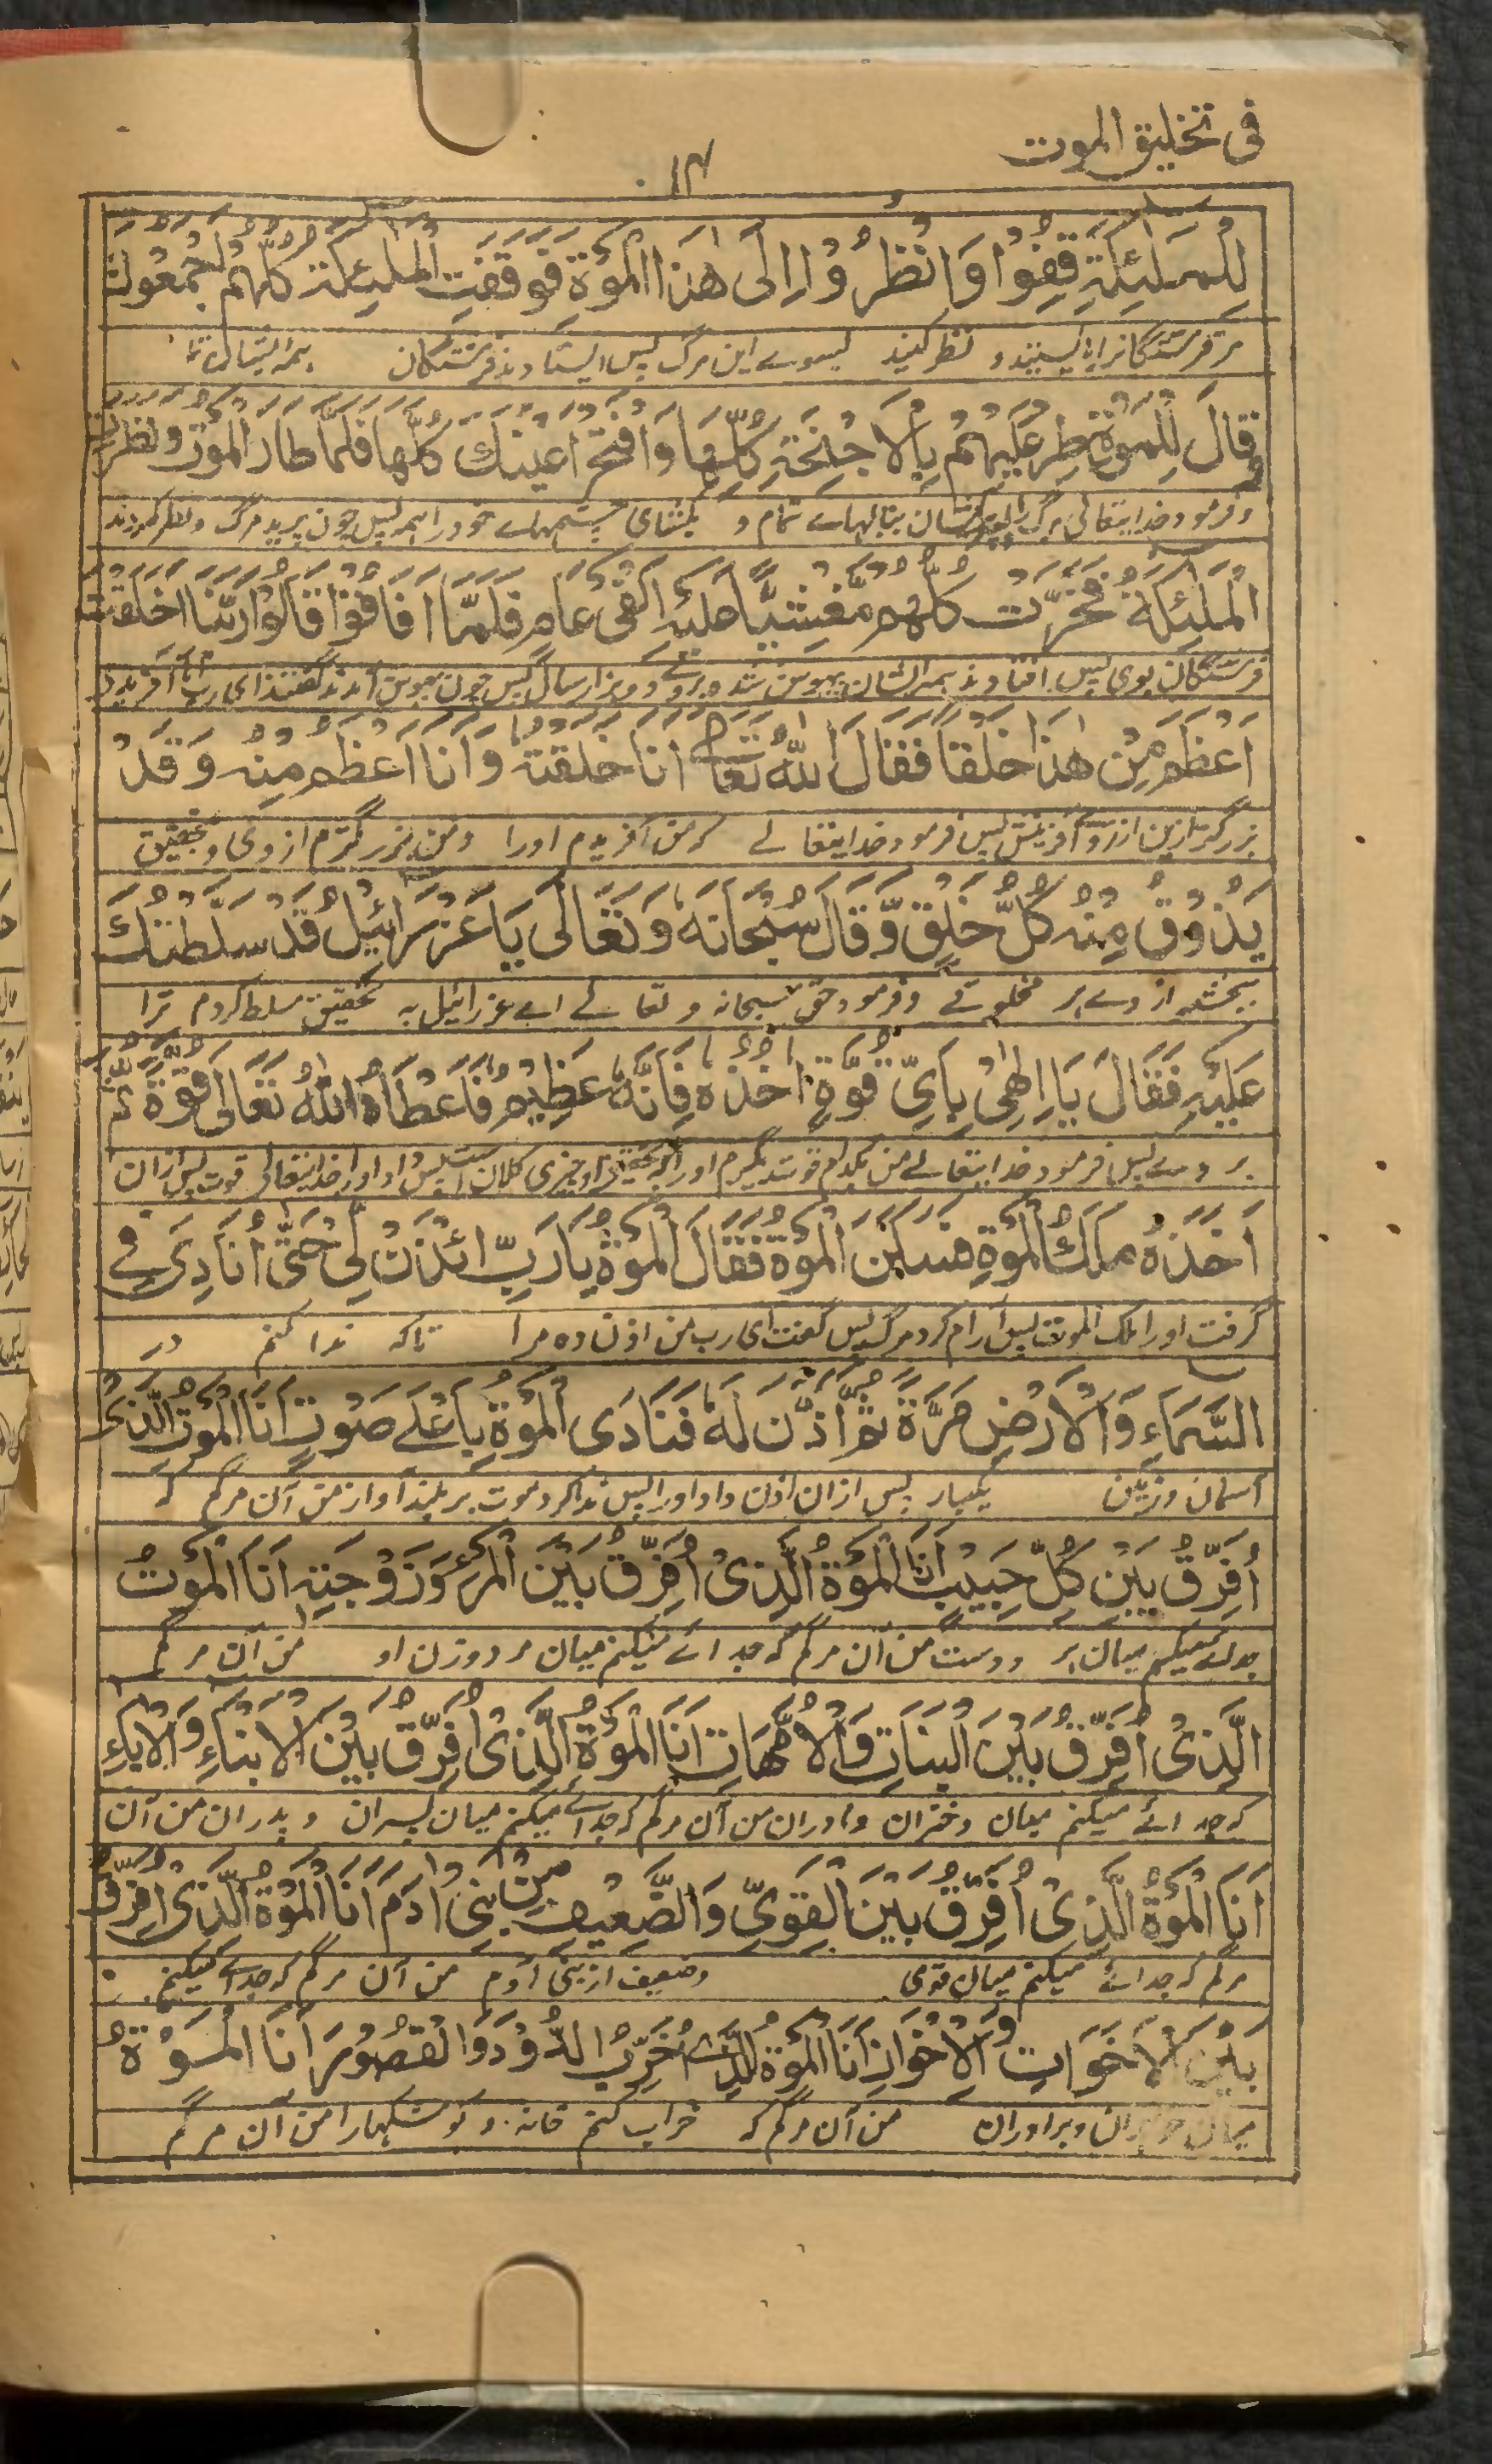 فی تخلیق الموت
۱۴
لِلْمَلٰئِكَةِ قِفُوْا وَانْظُرُوْا اِلٰى هٰذَا الْمَوْةِ فَوَقَفَتِ الْمَلٰئِكَةُ كُلُّهُمْ اَجْمَعُوْنَ
مرفرشتگانرا بایستید و نظر کنید بسوے این مرگ پس ایستادند فرشتگان همه
وَقَالَ لِلْمَوْةِ طِرْ عَلَيْهِمْ بِالْاَجْنِحَةِ كُلِّهَا وَافْتَحْ اَعْيُنَكَ كُلَّهَا فَلَمَّا طَارَ الْمَوْتُ وَنَظَرَتْ
و فرمود خدایتعالی مرگ را ببالهاے تمام و بکشای چشمهاے خود را همه پس چون پرید مرگ و نظر کردند
الْمَلٰئِكَةُ فَخَرَّتْ كُلُّهُمْ مَّغْشِيًّا عَلَيْهِ اَلْفَىْ عَامٍ فَلَمَّا اَفَاقُوْا قَالُوْا رَبَّنَا اَخَلَقْتَ
فرشتگان بوی پس افتادند همه ایشان بیهوش شده بروے دو هزار سال پس چون بهوش آمدند گفتند ای رب ما آیا آفریدی
اَعْظَمَ مِنْ هٰذَا خَلْقًا فَقَالَ اللّٰهُ تَعَالٰے اَنَا خَلَقْتُهٗ وَاَنَا اَعْظَمُ مِنْهُ وَقَدْ
بزرگتر ازین از روے آفرینش پس فرمود خدایتعالے که من آفریدم اورا و من بزرگترم از وی و بتحقیق
يَذُوْقُ مِنْهُ كُلُّ خَلْقٍ وَّقَالَ سُبْحَانَهٗ وَتَعَالٰى يَا عَزْرَائِيْلُ قَدْ سَلَّطْتُكَ
بچشد از وے هر مخلوقے و فرمود حق سبحانه و تعالے اے عزرائیل به تحقیق مسلط کردم ترا
عَلَيْهِ فَقَالَ يَا اِلٰهِىْ بِاَىِّ قُوَّةٍ اٰخُذُهٗ فَاِنَّهٗ عَظِيْمٌ فَاَعْطَاهُ اللّٰهُ تَعَالٰى قُوَّةً ثُمَّ
بر وے پس فرمود خدایتعالے من بکدام قوت بگیرم اورا او چیزی کلان است پس داد اورا خدایتعالی قوت پس ازان
اَخَذَهٗ مَلَكُ الْمَوْةِ فَسَكَنَ الْمَوْةُ فَقَالَ الْمَوْةُ يَا رَبِّ ائْذَنْ لِىْ حَتّٰى اُنَادِىَ فِے
گرفت اورا ملک الموت پس آرام کرد مرگ پس گفت ای رب من اذن ده مرا تاکه ندا کنم در
السَّمَاءِ وَالْاَرْضِ مَرَّةً ثُمَّ اَذِنَ لَهٗ فَنَادَى الْمَوْةُ بِاَعْلٰے صَوْتٍ اَنَا الْمَوْتُ الَّذِىْ
آسمان و زمین یکبار پس ازان اذن داد اورا پس ندا کرد موت بر بلند آواز من آن مرگم که
اُفَرِّقُ بَيْنَ كُلِّ حَبِيْبٍ اَنَا الْمَوْةُ الَّذِىْ اُفَرِّقُ بَيْنَ الْمَرْءِ وَزَوْجَتِهٖ اَنَا الْمَوْتُ
جدائے میکنم میان هر دوست من آن مرگم که جدائے میکنم میان مرد و زن او من آن مرگم
الَّذِىْ اُفَرِّقُ بَيْنَ الْبَنَاتِ وَالْاُمَّهَاتِ اَنَا الْمَوْةُ الَّذِىْ اُفَرِّقُ بَيْنَ الْاَبْنَاءِ وَالْاٰبَاءِ
که جدائے میکنم میان دختران و مادران من آن مرگم که جدائے میکنم میان پسران و پدران من آن
اَنَا الْمَوْةُ الَّذِىْ اُفَرِّقُ بَيْنَ الْقَوِىِّ وَالضَّعِيْفِ مِنْ بَنِىْ اٰدَمَ اَنَا الْمَوْةُ الَّذِىْ اُفَرِّقُ
مرگم که جدائے میکنم میان قوی و ضعیف از بنی آدم من آن مرگم که جدائے میکنم
بَيْنَ الْاَخَوَاتِ وَالْاِخْوَانِ اَنَا الْمَوْةُ الَّذِىْ اُخَرِّبُ الدُّوْرَ وَالْقُصُوْرَ اَنَا الْمَوْةُ
میان خواهران و برادران من آن مرگم که خراب کنم خانه و کوشکهارا من آن مرگم